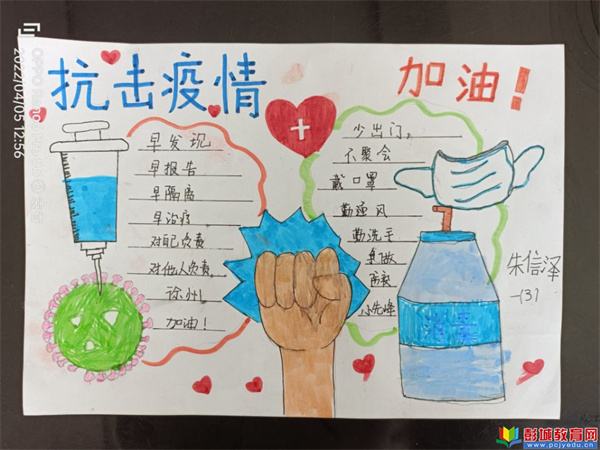 抗击疫情
加油！
早发现
早报告
早隔离
早治疗
对自己负责
对他人负责。
徐州！
加油！
少出门。
不聚会
戴口罩
勤通风
勤洗手
争做
防疫
小先锋
朱信泽
一(3)
2022/04/05 12:56
彭城教育网
www.pcjyedu.cn